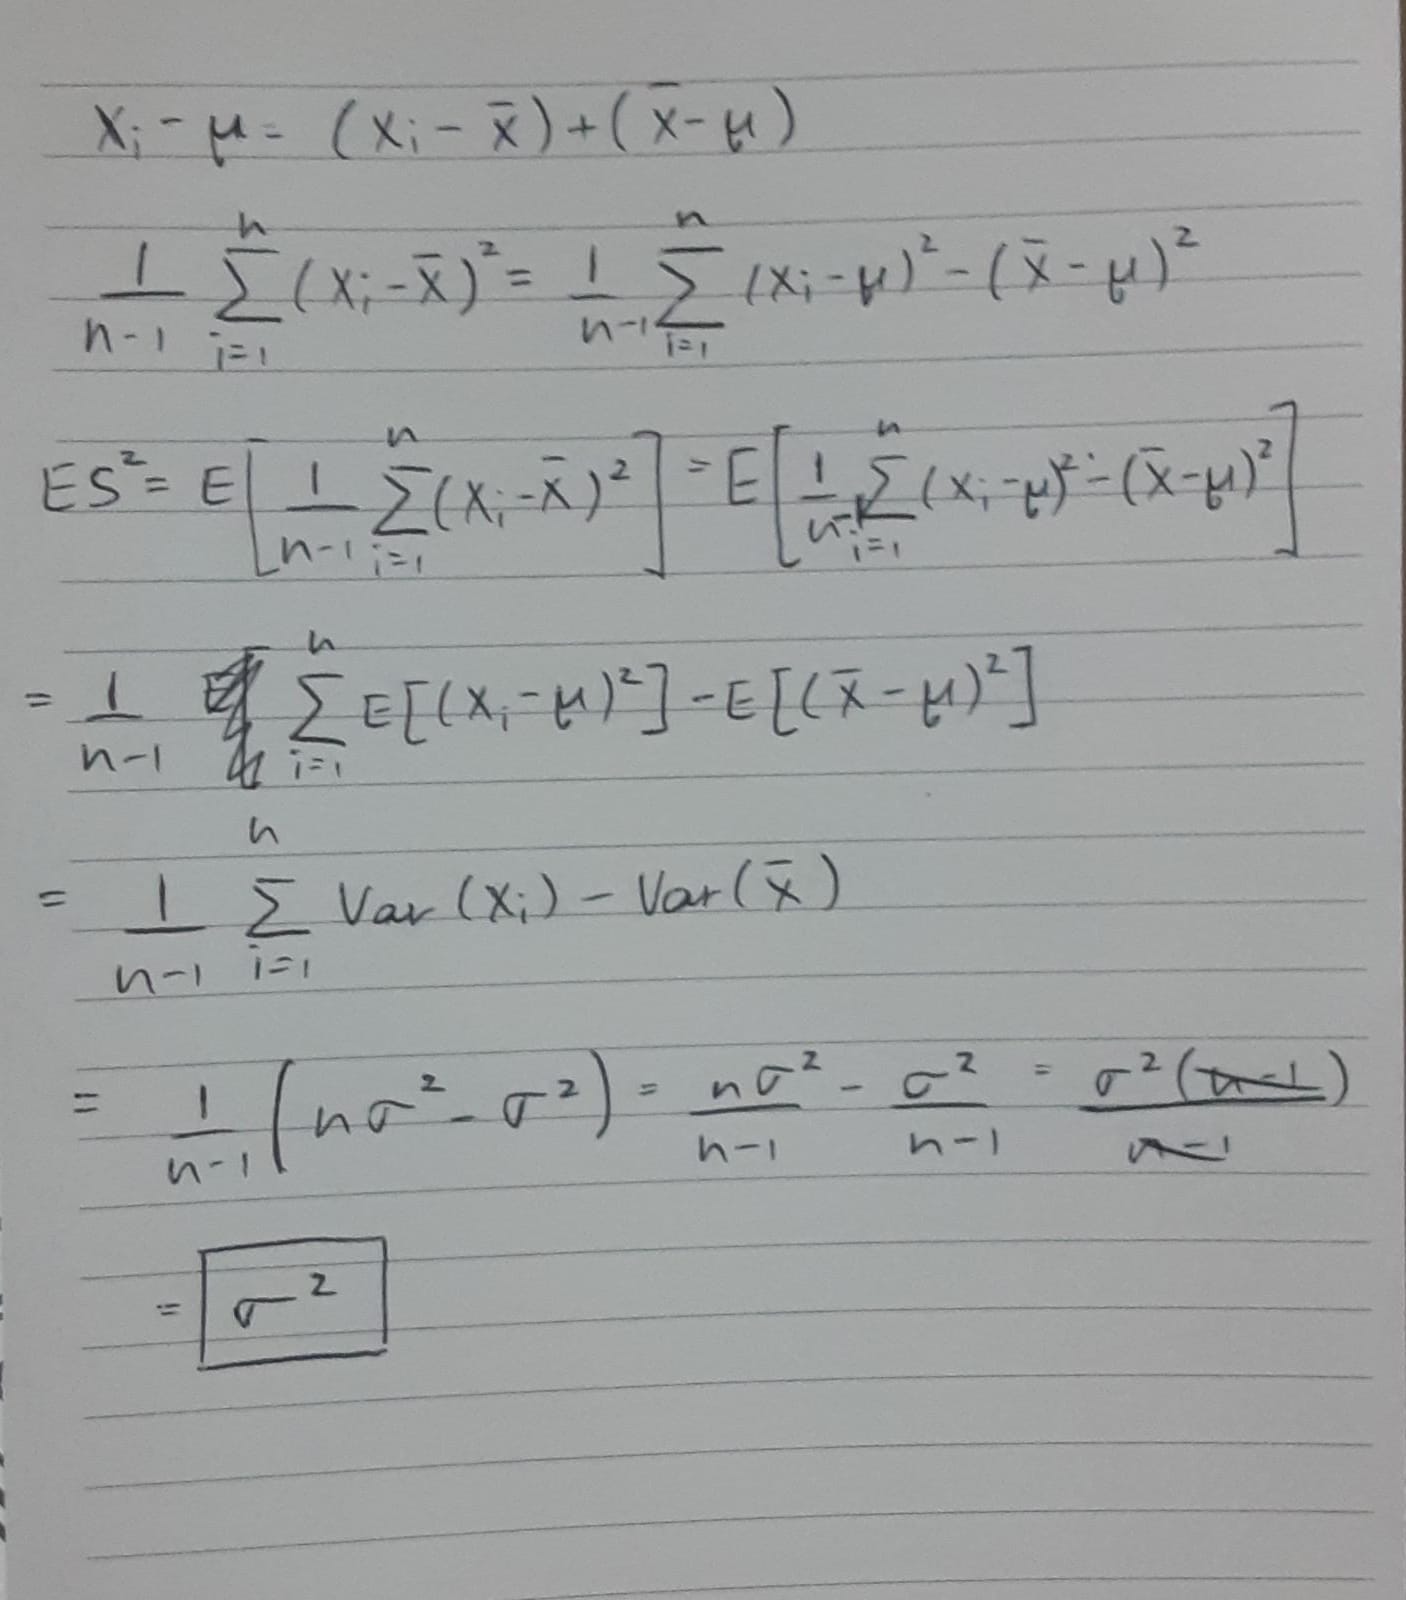 Xi - μ = (Xi - x̄) + (x̄ - μ)
1/(n-1) Σ_{i=1}^{n} (Xi - x̄)² = 1/(n-1) Σ_{i=1}^{n} (Xi - μ)² - (x̄ - μ)²
ES² = E[1/(n-1) Σ_{i=1}^{n} (Xi - x̄)²] = E[1/(n-1) Σ_{i=1}^{n} (Xi - μ)² - (x̄ - μ)²]
= 1/(n-1) Σ_{i=1}^{n} E[(Xi - μ)²] - E[(x̄ - μ)²]
= 1/(n-1) Σ_{i=1}^{n} Var(Xi) - Var(x̄)
= 1/(n-1) (nσ² - σ²) = nσ²/(n-1) - σ²/(n-1) = σ²(n-1)/(n-1)
= σ²